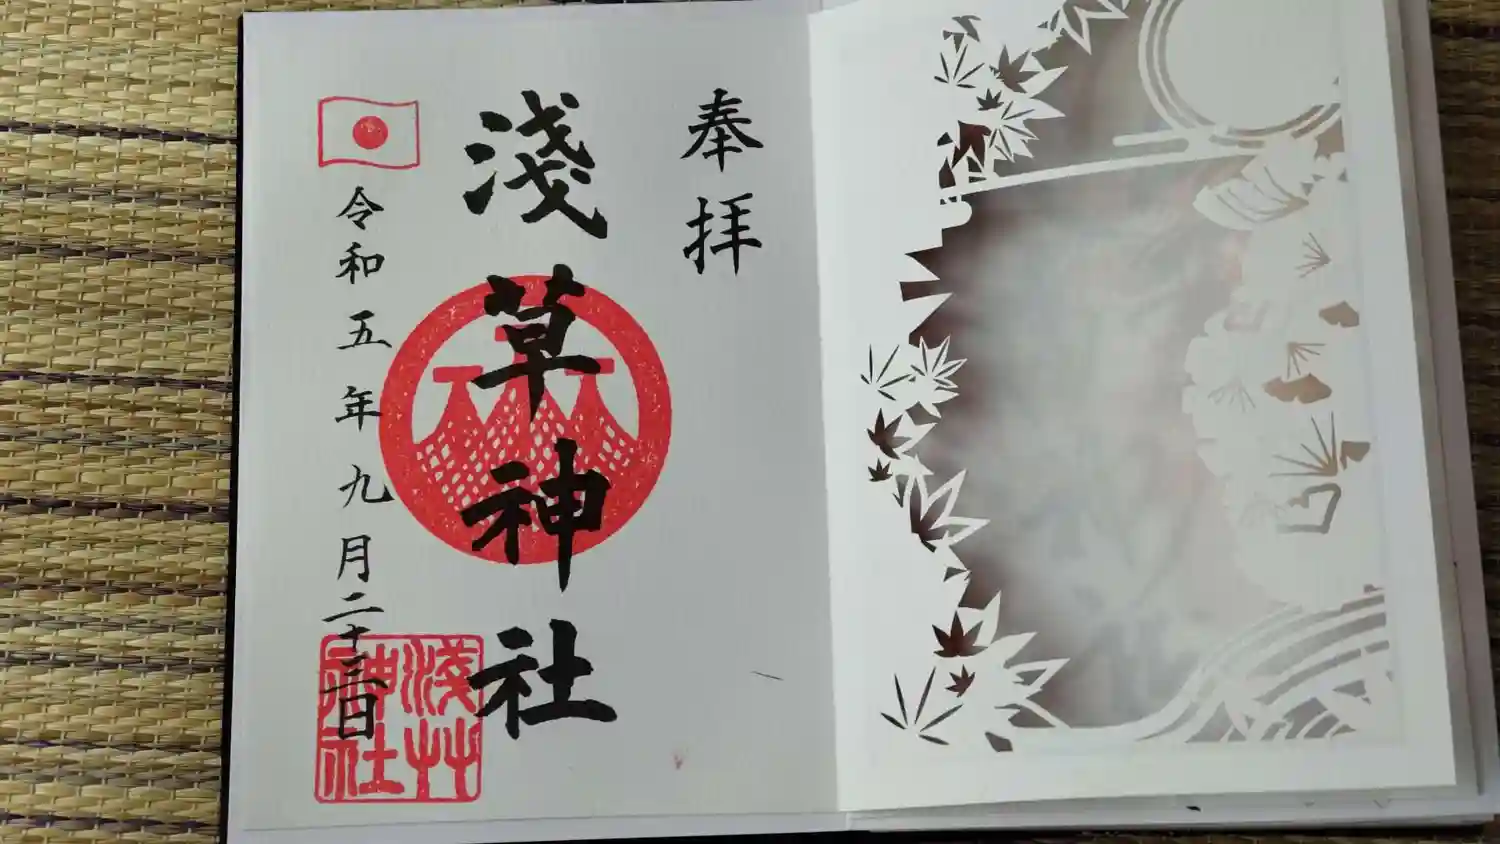 奉拝
淺草神社
令和五年九月二十三日
淺艸
神社